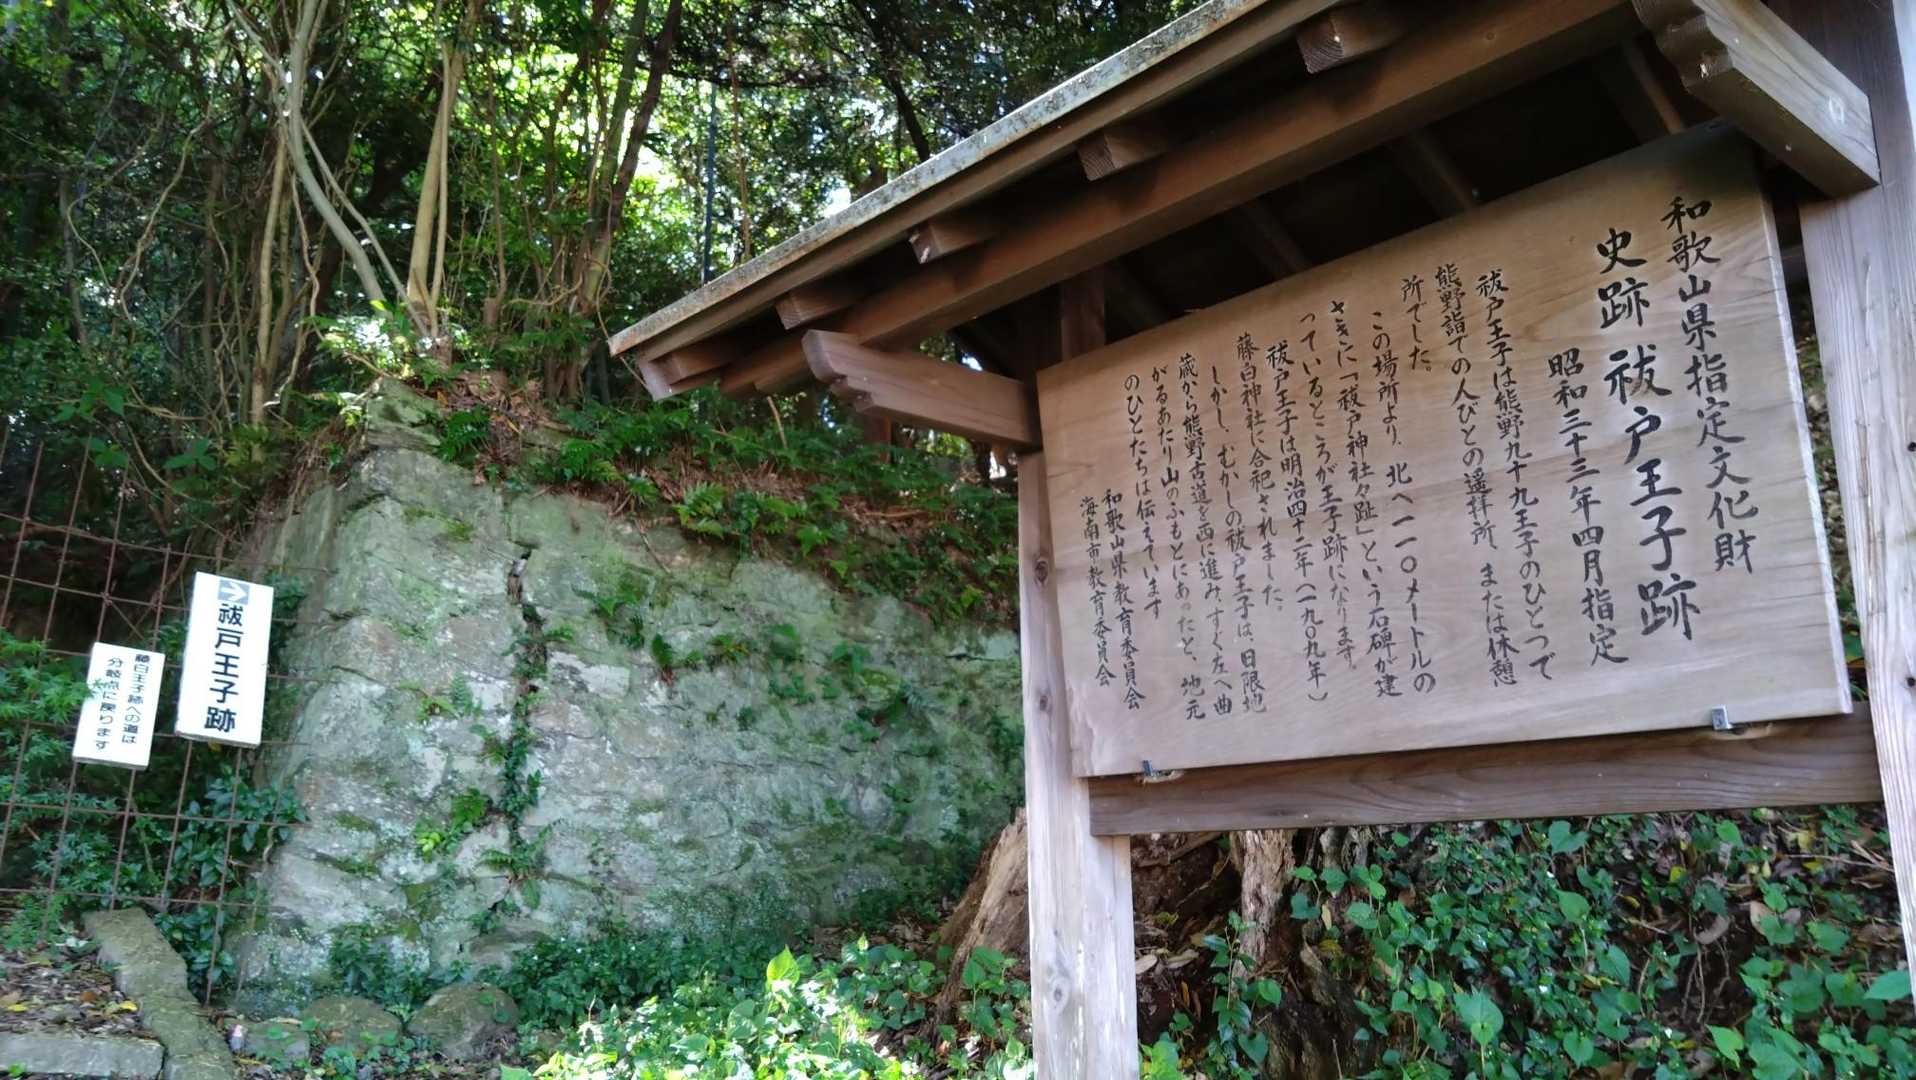 和歌山県指定文化財
史跡 祓戸王子跡
昭和三十三年四月指定
祓戸王子は熊野九十九王子のひとつで
熊野詣での人びとの遥拝所、または休憩
所でした。
この場所より、北へ一一〇メートルの
さきに「祓戸神社々趾」という石碑が建
っているところが王子跡になります。
祓戸王子は明治四十二年(一九〇九年)
藤白神社に合祀されました。
しかし、むかしの祓戸王子は、日限地
蔵から熊野古道を西に進み、すぐ左へ曲
がるあたり山のふもとにあったと、地元
のひとたちは伝えています
和歌山県教育委員会
海南市教育委員会
祓戸王子跡
藤白王子跡への道は
分岐点に戻ります